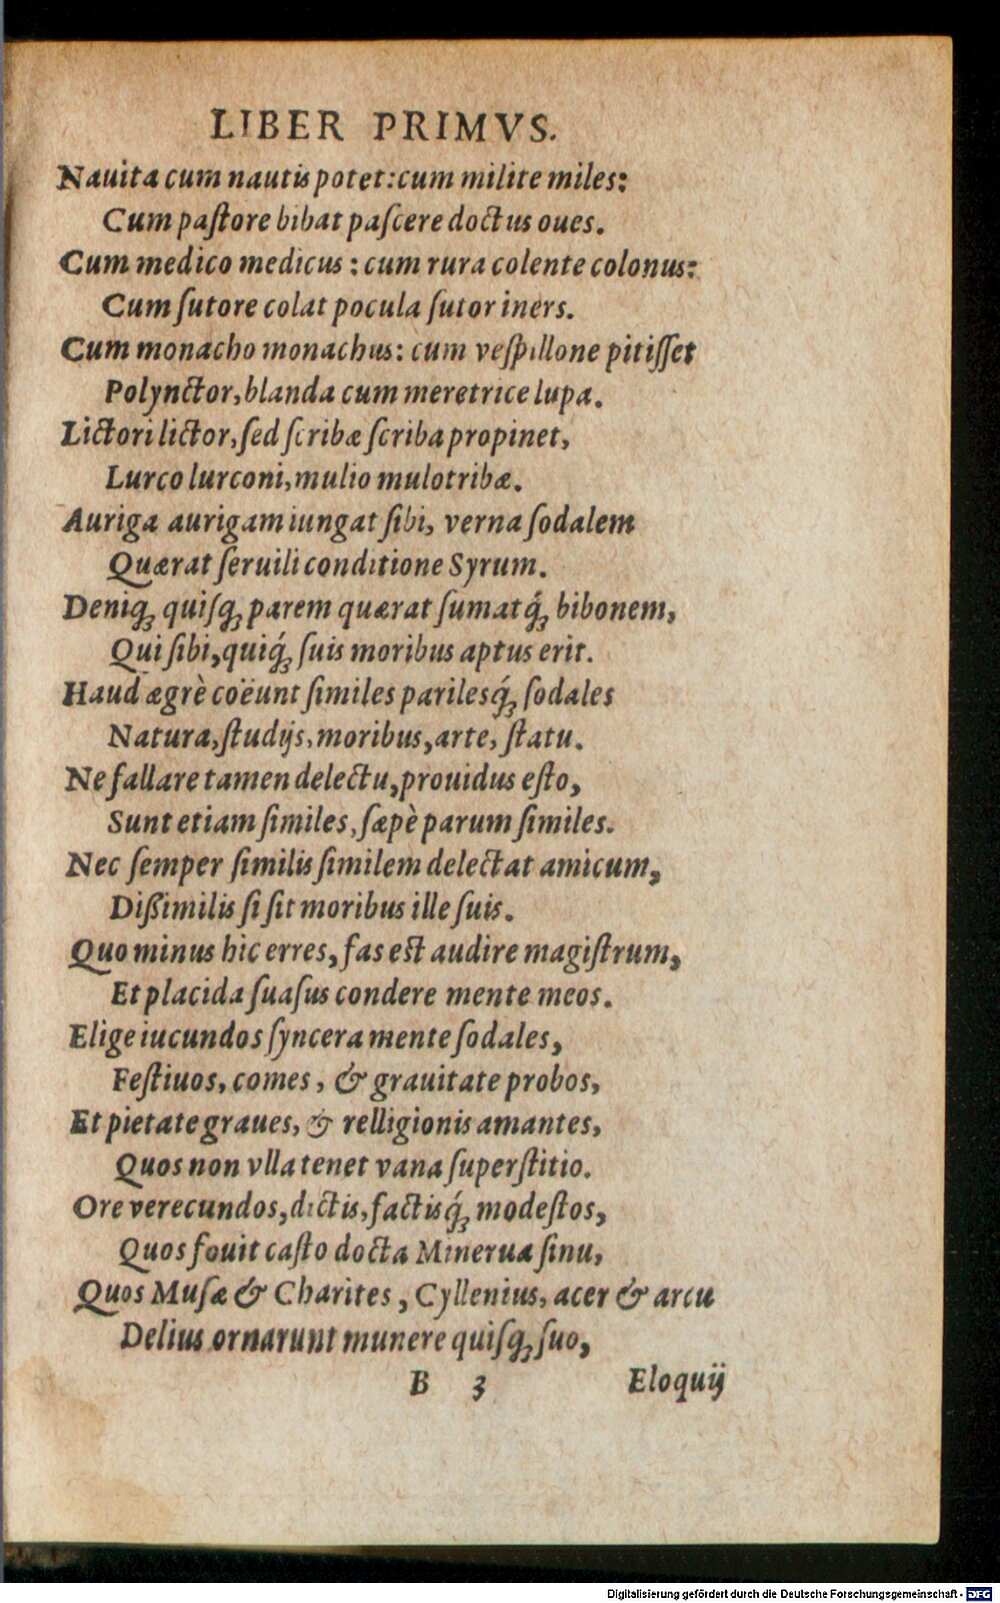 LIBER PRIMVS.
Nauita cum nautis potet: cum milite miles:
Cum paſtore bibat paſcere doctus oues.
Cum medico medicus : cum rura colente colonus:
Cum ſutore colat pocula ſutor iners.
Cum monacho monachus: cum veſpillone pitiſſet
Polynctor, blanda cum meretrice lupa.
Lictori lictor, ſed ſcribæ ſcriba propinet,
Lurco lurconi, mulio mulotribæ.
Auriga aurigam iungat ſibi, verna ſodalem
Quærat ſeruili conditione Syrum.
Deniqꝫ quiſqꝫ parem quærat ſumatq́ꝫ bibonem,
Qui ſibi, quiq́ꝫ ſuis moribus aptus erit.
Haud ægrè coëunt ſimiles parilesq́ꝫ ſodales
Natura, ſtudijs, moribus, arte, ſtatu.
Ne fallare tamen delectu, prouidus eſto,
Sunt etiam ſimiles, ſæpè parum ſimiles.
Nec ſemper ſimilis ſimilem delectat amicum,
Dißimilis ſi ſit moribus ille ſuis.
Quo minus hic erres, fas est audire magiſtrum,
Et placida ſuaſus condere mente meos.
Elige iucundos ſyncera mente ſodales,
Feſtiuos, comes, & grauitate probos,
Et pietate graues, & relligionis amantes,
Quos non vlla tenet vana ſuperſtitio.
Ore verecundos, dictis, factisq́ꝫ modeſtos,
Quos fouit caſto docta Minerua ſinu,
Quos Muſæ & Charites, Cyllenius, acer & arcu
Delius ornarunt munere quiſqꝫ ſuo,
B 3 Eloquij
Digitalisierung gefördert durch die Deutsche Forschungsgemeinschaft - DFG